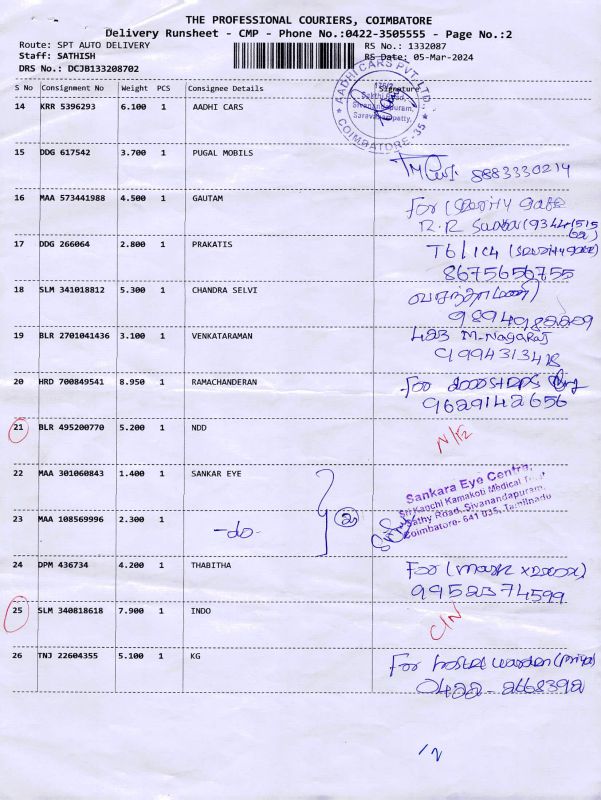 THE PROFESSIONAL COURIERS, COIMBATORE
Delivery Runsheet - CMP - Phone No.:0422-3505555 - Page No.:2
Route: SPT AUTO DELIVERY RS No.: 1332087
Staff: SATHISH RS Date: 05-Mar-2024
DRS No.: DCJB133208702
S No Consignment No Weight PCS Consignee Details Signature
14 KRR 5396293 6.100 1 AADHI CARS
AADHI CARS PVT. LTD.
Sakthi Road,
Sivanandapuram,
Saravanampatty,
COIMBATORE-35
15 DDG 617542 3.700 1 PUGAL MOBILS
8883330214
16 MAA 573441988 4.500 1 GAUTAM
For
17 DDG 266064 2.800 1 PRAKATIS
8675656755
18 SLM 341018812 5.300 1 CHANDRA SELVI
19 BLR 2701041436 3.100 1 VENKATARAMAN
M-Nagaraj
20 HRD 700849541 8.950 1 RAMACHANDERAN
For
9629142656
21 BLR 495200770 5.200 1 NDD
22 MAA 301060843 1.400 1 SANKAR EYE
Sankara Eye Centre,
Sri Kanchi Kamakoti Medical Trust
Sathy Road, Sivanandapuram,
Coimbatore- 641 035, Tamilnadu
23 MAA 108569996 2.300 1 -do- 2
24 DPM 436734 4.200 1 THABITHA
For
9952374599
25 SLM 340818618 7.900 1 INDO
C/N
26 TNJ 22604355 5.100 1 KG
For hostel warden (priya)
0422-2668392